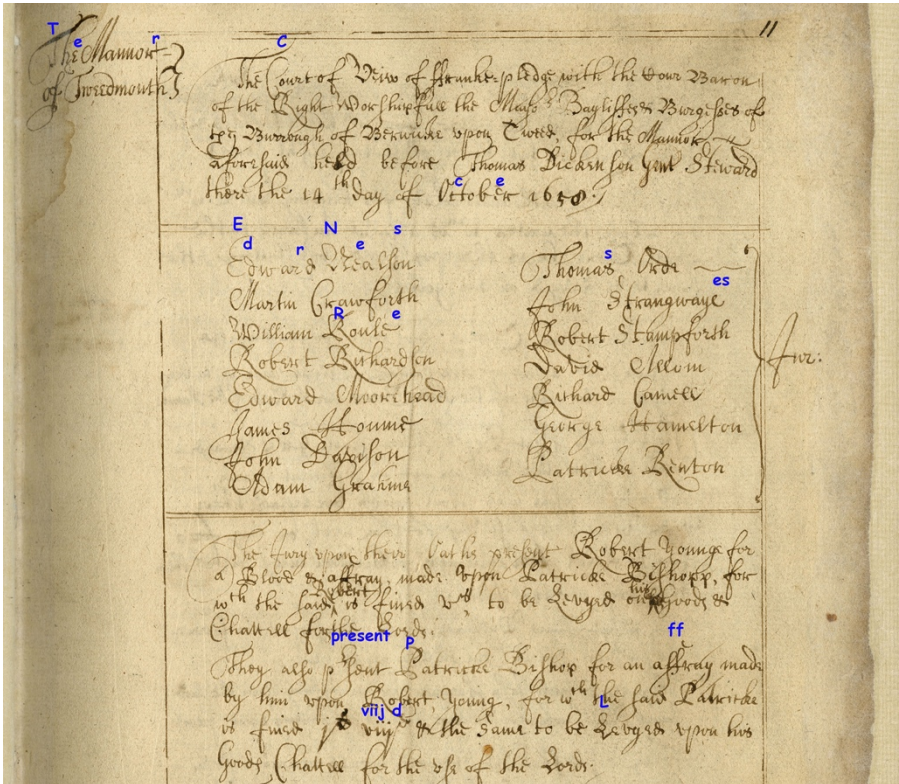 11
The Mannor
of Tweedmouth
The Court of View of ffranke pledge with the Cour Baron
of the Right Worshipfull the Maior Bayliffes & Burgesses of
the Burrough of Berwicke vpon Tweed, for the Mannor
aforesaid held before Thomas Dickenson Gent Steward
there the 14th day of October 1658
Edward Nealson
Martin Crawforth
William Roule
Robert Richardson
Edward Moorehead
James Houme
John Davison
Adam Grahme
Thomas Orde
John Strangwayes
Robert Stampforth
David Allom
Richard Camell
George Hamelton
Patricke Renton
Jur:
The Jury vpon their Oathes present Robert Younge for
a Blood & affray, made vpon Patricke Bishopp, for
wth the said Robert is fined vs, to be Levyed his Goods &
Chattell for the Lords.
They also present Patricke Bishop for an affray made
by him vpon Robert Young, for wth the said Patricke
is fined viijd & the same to be Levyed vpon his
Goods Chattell for the vse of the Lords.
T
e
r
C
c
e
E
d
r
N
e
s
R
e
s
es
present
P
ff
viij d
L